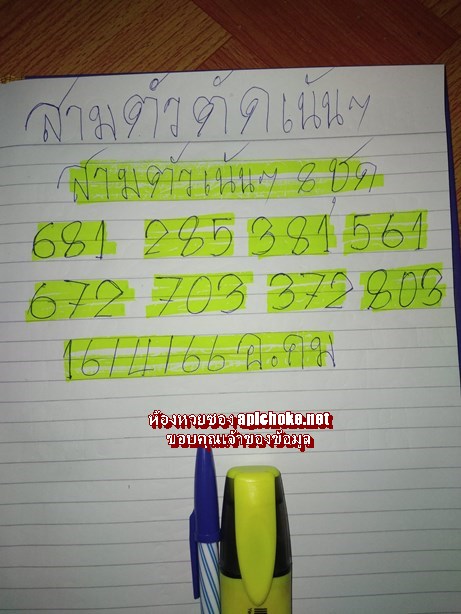 สามตัวตัดเน้นๆ
สามตัวเน้นๆ 8 ชุด
681 285 381 561
672 703 372 803
16/4/66 อ.คม
ห้องหวยซอง apichoke.net
ขอบคุณเจ้าของข้อมูล